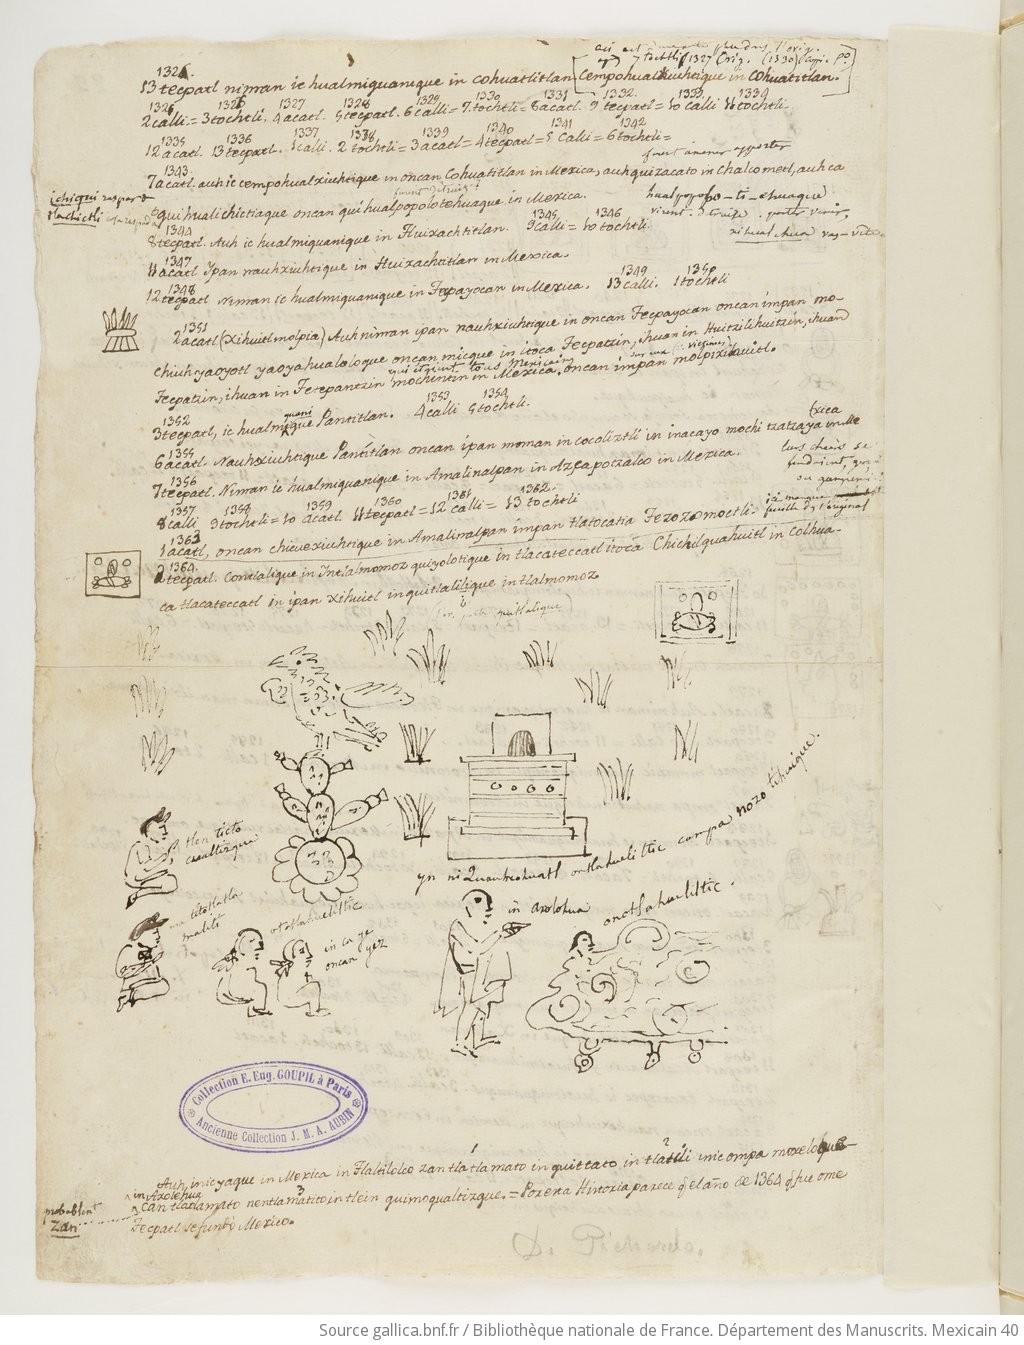 1324
13 tecpatl niman ic hualmiquanique in cohuatitlan [cempohualxiuhtique in cohuatitlan.
7 tochtli (1327 Orig. (1330) Copi. Po.]
1325 1326 1327 1328 1329 1330 1331 1332. 1333 1334
2 calli = 3 tochtli. 4 acatl. 5 tecpatl. 6 calli = 7. tochtli = 8 acatl. 9 tecpatl = 10 calli 11 tochtli.
1335 1336 1337 1338 1339 1340 1341 1342
12 acatl. 13 tecpatl. 1 calli. 2 tochtli = 3 acatl = 4 tecpatl = 5 calli = 6 tochtli =
1343.
7 acatl. auh ic cempohualxiuhtique in oncan Cohuatitlan in Mexica, auh quizacato in Chalco metl, auh ca
quihualichictiaque oncan quihualpopolotehuaque in Mexica.
1344 1345 1346
8 tecpatl. Auh ic hualmiquanique in Huixachtitlan. 9 calli = 10 tochtli.
1347
11 acatl Ypan nauhxiuhtique in Huixachtitlan in Mexica.
1348 1349 1350
12 tecpatl Niman ic hualmiquanique in Tecpayocan in Mexica. 13 calli. 1 tochtli
1351
2 acatl (Xihuitl molpia) Auh niman ipan nauhxiuhtique in oncan Tecpayocan oncan impan mo-
chiuh yaoyotl yaoyahualoloque oncan micque in itoca Tecpatzin, ihuan in Huitzilihuitzin, ihuan
Tecpatzin, ihuan in Tetepantzin mochintin in Mexica. oncan impan molpixihuitl.
1352 1353 1354
3 tecpatl, ic hualmique Pantitlan. 4 calli 5 tochtli.
quani
1355
6 acatl. Nauhxiuhtique Pantitlan oncan ipan moman in cocoliztli in inacayo mochi tzatzayan in Me
xica
1356
7 tecpatl. Niman ic hualmiquanique in Amalinalpan in Azcapotzalco in Mexica.
1357 1358 1359 1360 1361 1362.
8 calli 9 tochtli = 10 acatl. 11 tecpatl = 12 calli = 13 tochtli
ici manque
feuille de l'original
1363
1 acatl, oncan chicuexiuhtique in Amalinalpan impan tlatocatia Tezozomoctli.
1364.
2 tecpatl. Contlalique in Intlalmomoz quiyolotique in tlacateccatl itoca Chichilquahuitl in Colhua-
ca tlacateccatl in ipan Xihuitl in quitlalilique in tlalmomoz
yn ni Quauhcohuatl ontlahueliltic campa nozo tihuique.
tlen ticto
cualtizque
ma titotlatla
malili
ototlahueliltic
in ca ye
oncan yez
in axolohua
onotlahueliltic.
Collection E. Eug. GOUPIL à Paris
Ancienne Collection J. M. A. AUBIN
Auh inic yaque in Mexica in Tlaltilolco zan tlatlamato in quittato in tlatili inic ompa moxeloque
in Axolohua
probablemt
zan
can tlatlamato nentlamatito in tlein quimoqualtizque. = Por esta Historia parece q el año de 1364 q fue ome
Tecpatl se fundò Mexico.
D. Pichardo.
Source gallica.bnf.fr / Bibliothèque nationale de France. Département des Manuscrits. Mexicain 40